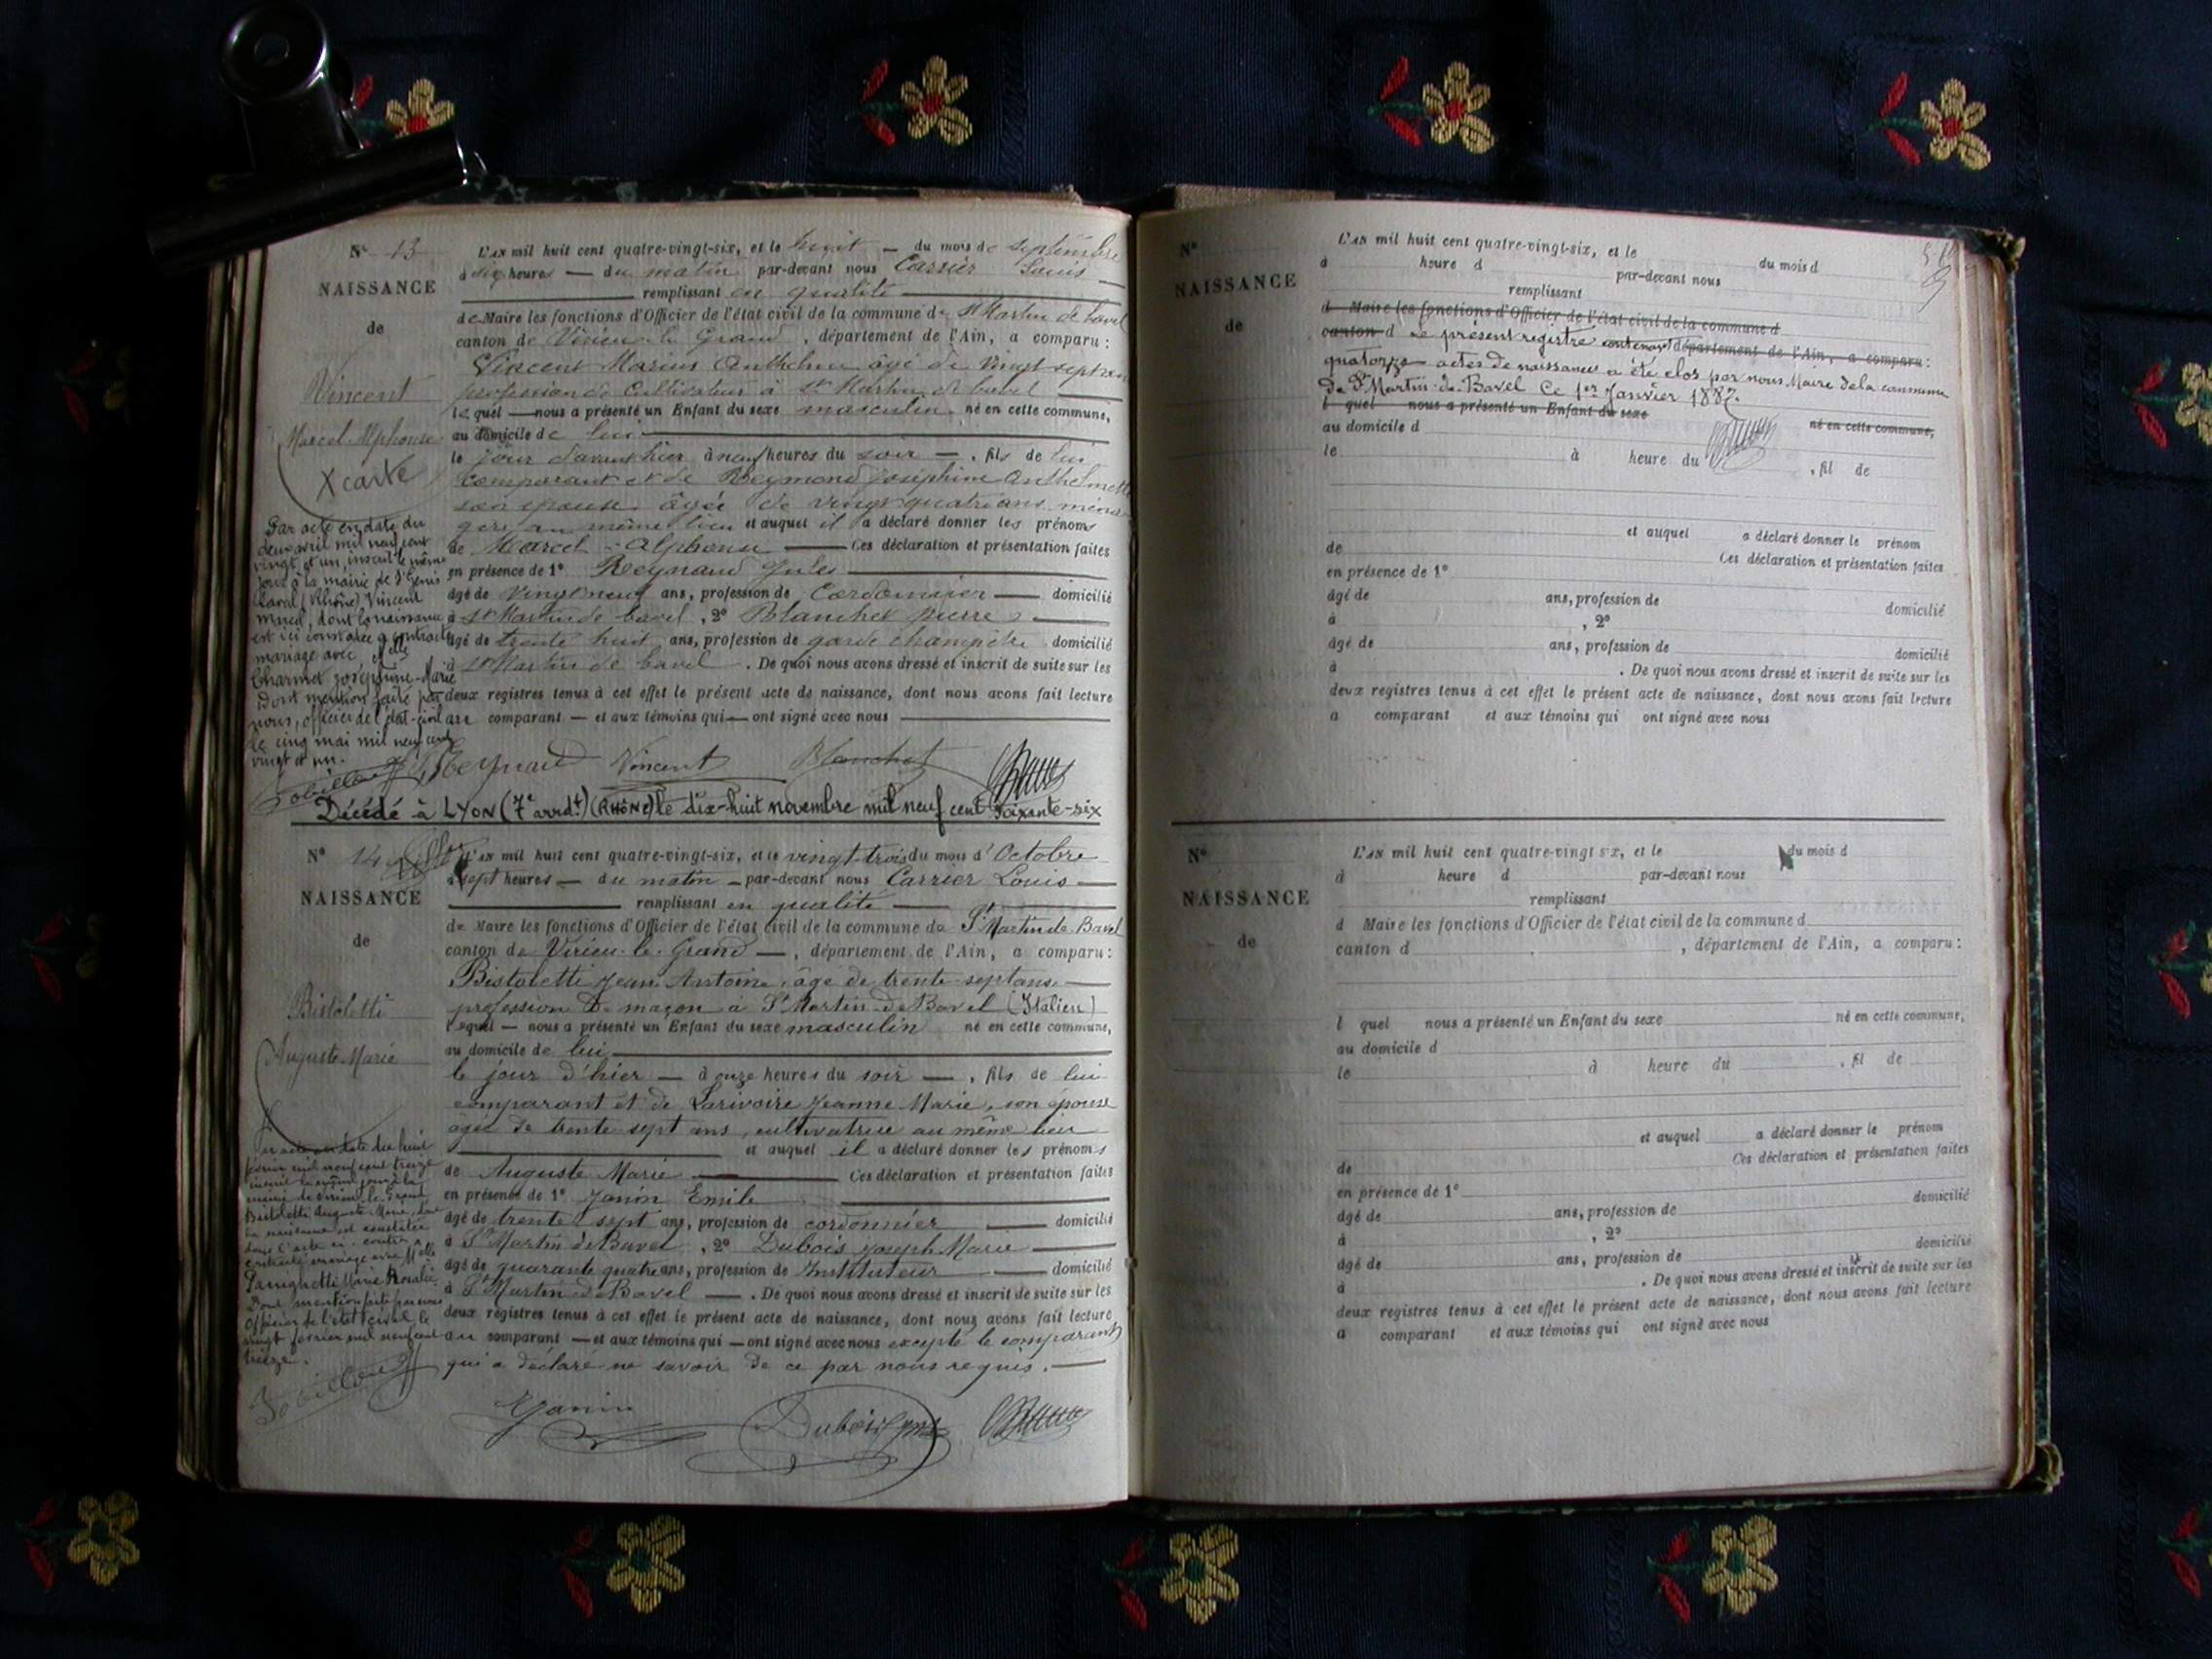 N° 13
NAISSANCE
de
Vincent
Marcel Alphonse
X carte
L'AN mil huit cent quatre-vingt-six, et le huit — du mois de septembre
à dix heures — du matin par-devant nous Carrier Louis
remplissant en qualité
de Maire les fonctions d'Officier de l'état civil de la commune de St Martin de bavel
canton de Virieu le Grand, département de l'Ain, a comparu :
Vincent Marius Anthelme âgé de vingt sept ans
profession de Cultivateur à St Martin de bavel
lequel — nous a présenté un Enfant du sexe masculin né en cette commune,
au domicile de lui
le jour d'avant hier à neuf heures du soir — , fils de lui
comparant et de Reymond Joséphine Anthelmette
son épouse âgée de vingt quatre ans, ména
gère au même lieu et auquel il a déclaré donner les prénoms
de Marcel - Alphonse — Ces déclaration et présentation faites
en présence de 1° Reynaud Jules
âgé de vingt neuf ans, profession de Cordonnier — domicilié
à St Martin de bavel , 2° Blanchet Pierre
âgé de trente huit ans, profession de garde champêtre domicilié
à St Martin de bavel . De quoi nous avons dressé et inscrit de suite sur les
deux registres tenus à cet effet le présent acte de naissance, dont nous avons fait lecture
au comparant — et aux témoins qui — ont signé avec nous
Par acte en date du
deux avril mil neuf cent
vingt et un, inscrit le même
jour à la mairie de St Genis
Laval (Rhône) Vincent
Marcel, dont la naissance
est ici constatée a contracté
mariage avec Melle
Charmet Joséphine-Marie
Dont mention faite par
nous, officier de l'état-civil
le cinq mai mil neuf cent
vingt et un.
Reynaud Vincent Blanchet
Décédé à LYON (7e arrdt) (RHÔNE) le dix-huit novembre mil neuf cent soixante-six
N° 14
NAISSANCE
de
Bistoletti
Auguste Marie
L'AN mil huit cent quatre-vingt-six, et le vingt-trois du mois d'Octobre
à sept heures — du matin — par-devant nous Carrier Louis —
remplissant en qualité
de Maire les fonctions d'Officier de l'état civil de la commune de St Martin-de-Bavel
canton de Virieu-le-Grand —, département de l'Ain, a comparu :
Bistoletti Jean Antoine, âgé de trente-sept ans
profession de maçon à St Martin-de-Bavel (Italien)
lequel — nous a présenté un Enfant du sexe masculin né en cette commune,
au domicile de lui
le jour d'hier — à onze heures du soir — , fils de lui
comparant et de Larivoire Jeanne Marie, son épouse
âgée de trente sept ans, cultivatrice au même lieu
et auquel il a déclaré donner les prénoms
de Auguste Marie — Ces déclaration et présentation faites
en présence de 1° Janin Emile
âgé de trente sept ans, profession de cordonnier — domicilié
à St Martin de Bavel , 2° Dubois Joseph Marie
âgé de quarante quatre ans, profession de Instituteur — domicilié
à St Martin de Bavel — . De quoi nous avons dressé et inscrit de suite sur les
deux registres tenus à cet effet le présent acte de naissance, dont nous avons fait lecture
au comparant — et aux témoins qui — ont signé avec nous excepté le comparant
qui a déclaré ne savoir de ce par nous requis.
Par acte en date du huit
février mil neuf cent treize
inscrit le même jour à la
mairie de Virieu-le-Grand
Bistoletti Auguste Marie, dont
la naissance est constatée
dans l'acte ci-contre, a
contracté mariage avec Melle
Marie Rosalie
Dont mention faite par nous
Officier de l'état civil le
vingt février mil neuf cent
treize.
Janin Dubois
N°
NAISSANCE
de
L'AN mil huit cent quatre-vingt-six, et le du mois d
à heure d par-devant nous
remplissant
d Maire les fonctions d'Officier de l'état civil de la commune d
canton d Le présent registre contenant département de l'Ain, a comparu :
quatorze actes de naissances a été clos par nous Maire de la commune
de St Martin-de-Bavel Ce 1er Janvier 1887.
l quel nous a présenté un Enfant du sexe né en cette commune,
au domicile d
le à heure du , fil de
et auquel a déclaré donner le prénom
de Ces déclaration et présentation faites
en présence de 1°
âgé de ans, profession de domicilié
à , 2°
âgé de ans, profession de domicilié
à . De quoi nous avons dressé et inscrit de suite sur les
deux registres tenus à cet effet le présent acte de naissance, dont nous avons fait lecture
a comparant et aux témoins qui ont signé avec nous
N°
NAISSANCE
de
L'AN mil huit cent quatre-vingt six, et le du mois d
à heure d par-devant nous
remplissant
d Maire les fonctions d'Officier de l'état civil de la commune d
canton d , département de l'Ain, a comparu :
l quel nous a présenté un Enfant du sexe né en cette commune,
au domicile d
le à heure du , fil de
et auquel a déclaré donner le prénom
de Ces déclaration et présentation faites
en présence de 1°
âgé de ans, profession de domicilié
à , 2°
âgé de ans, profession de domicilié
à . De quoi nous avons dressé et inscrit de suite sur les
deux registres tenus à cet effet le présent acte de naissance, dont nous avons fait lecture
a comparant et aux témoins qui ont signé avec nous